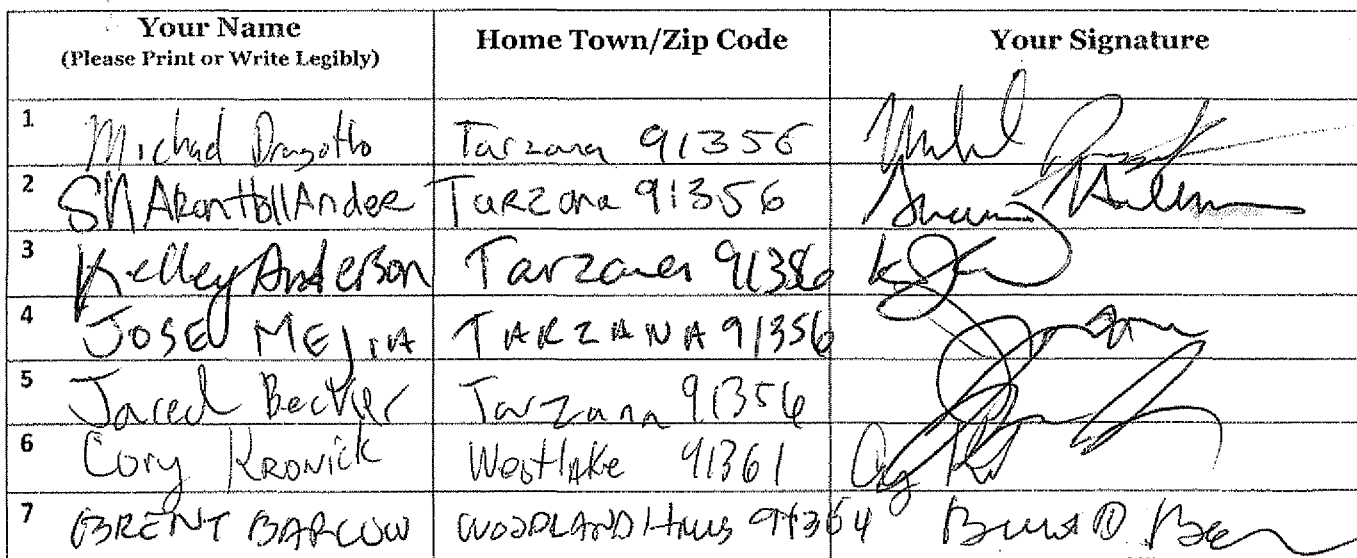 Your Name Home Town/Zip Code Your Signature
(Please Print or Write Legibly)
1 Michael Dragotto Tarzana 91356
2 SHAronHollAnder TaRzana 91356
3 Kelley Anderson Tarzana 91356
4 JOSE MEJIA TARZANA 91356
5 Jared Becker Tarzana 91356
6 Cory KRONICK WestlAKe 91361
7 BRENT BARLOW WOODLAND Hills 91364